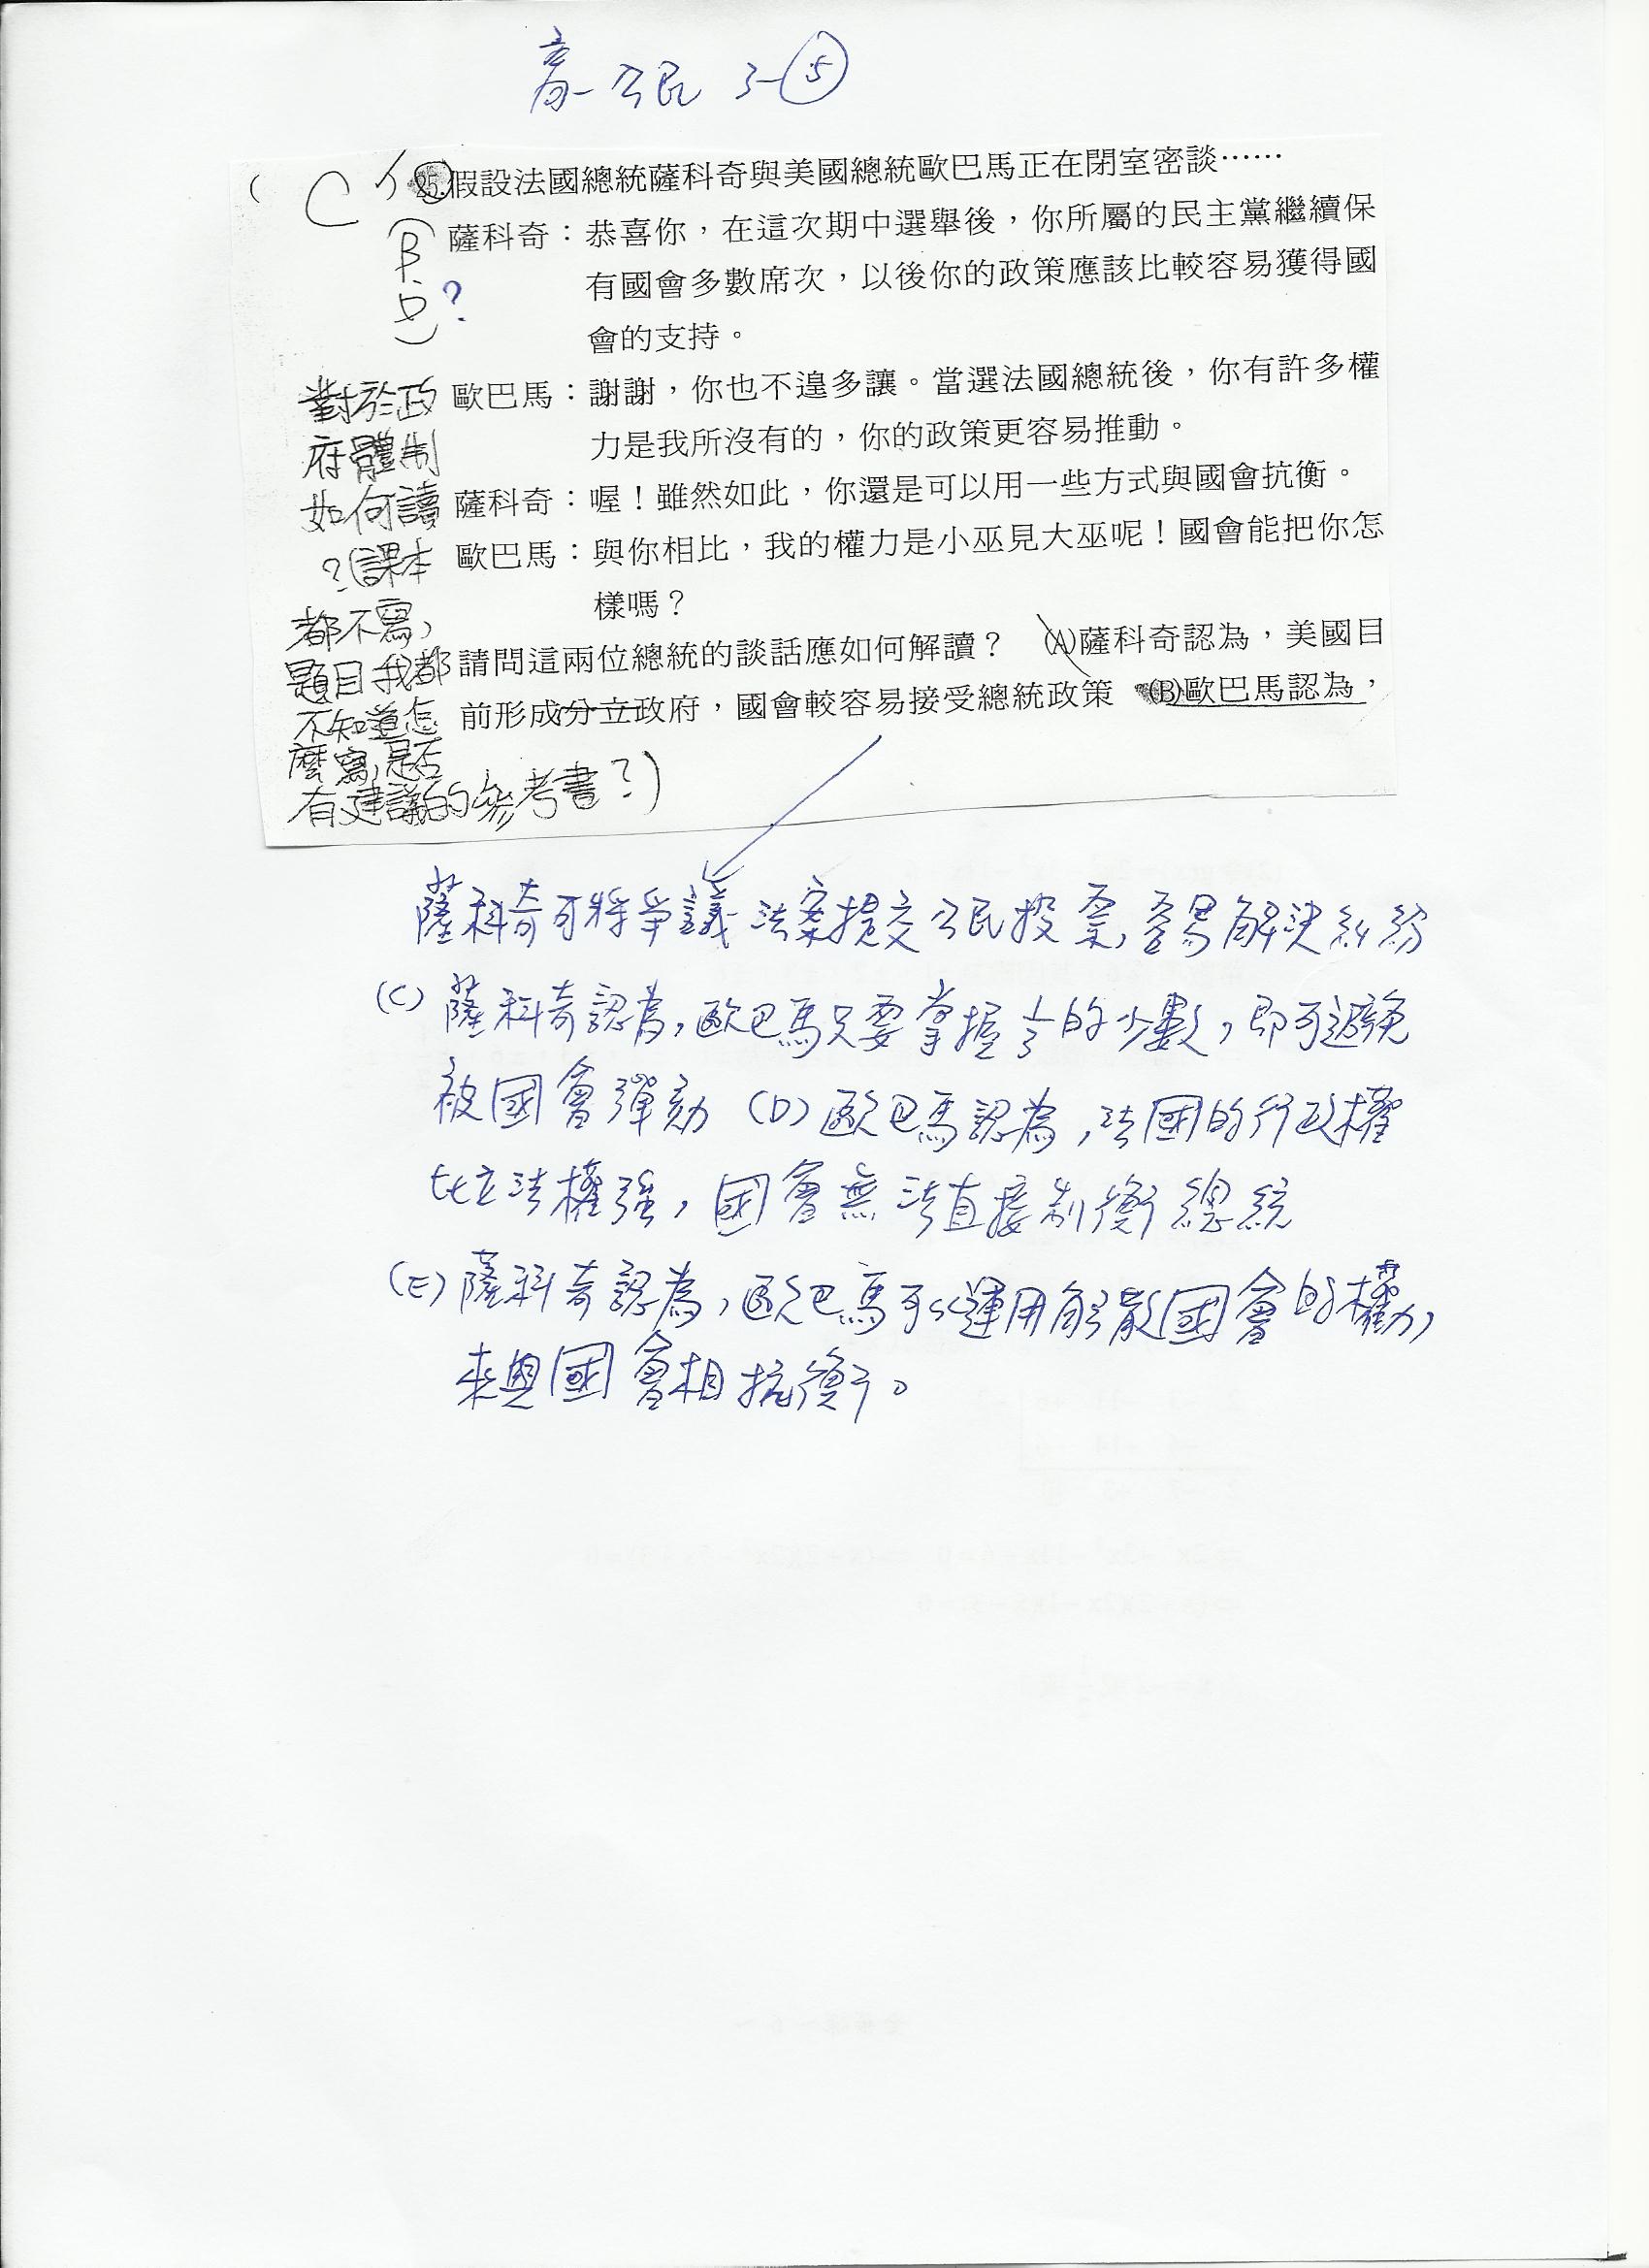 高一公民 3-⑤
( C 25.假設法國總統薩科奇與美國總統歐巴馬正在閉室密談⋯⋯
(B.D)?
薩科奇：恭喜你，在這次期中選舉後，你所屬的民主黨繼續保
有國會多數席次，以後你的政策應該比較容易獲得國
會的支持。
歐巴馬：謝謝，你也不遑多讓。當選法國總統後，你有許多權
力是我所沒有的，你的政策更容易推動。
薩科奇：喔！雖然如此，你還是可以用一些方式與國會抗衡。
歐巴馬：與你相比，我的權力是小巫見大巫呢！國會能把你怎
樣嗎？
請問這兩位總統的談話應如何解讀？　(A)薩科奇認為，美國目
前形成分立政府，國會較容易接受總統政策　(B)歐巴馬認為，
對於政
府體制
如何讀
?(課本
都不寫,
題目我都
不知道怎
麼寫,是否
有建議的參考書?)
薩科奇可將爭議法案提交公民投票,容易解決糾紛
(C) 薩科奇認為,歐巴馬只要掌握1/3的少數,即可避免
被國會彈劾 (D) 歐巴馬認為,法國的行政權
比立法權強,國會無法直接制衡總統
(E) 薩科奇認為,歐巴馬可以運用解散國會的權力,
來與國會相抗衡。